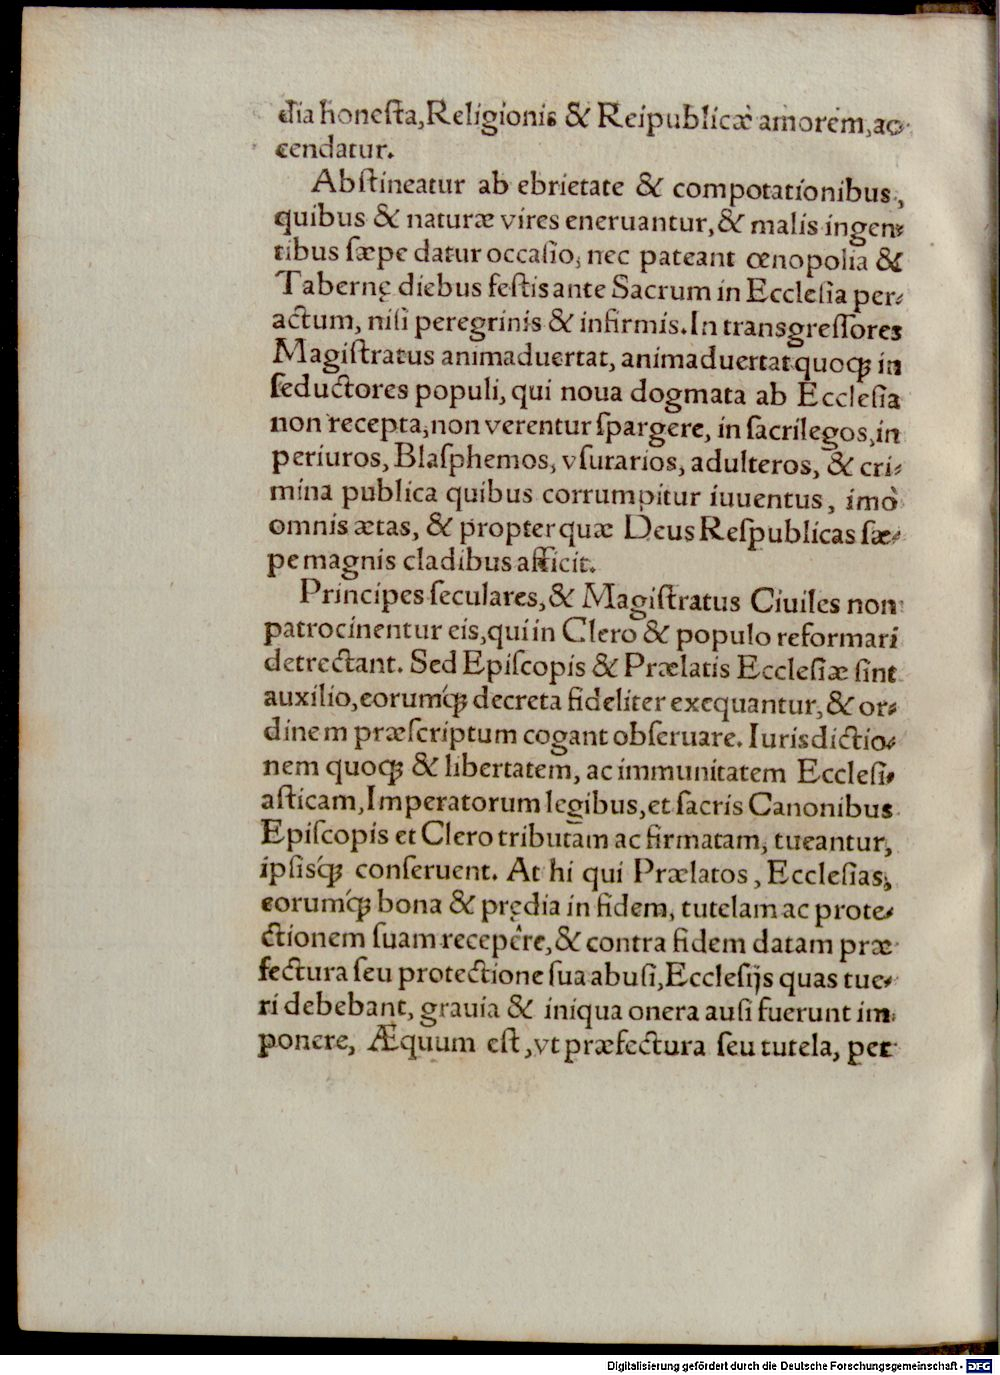 dia honeſta, Religionis & Reipublicæ amorem, ac-
cendatur.
Abſtineatur ab ebrietate & compotationibus,
quibus & naturæ vires eneruantur, & malis ingen-
tibus ſæpe datur occaſio, nec pateant œnopolia &
Tabernę diebus feſtis ante Sacrum in Eccleſia per-
actum, niſi peregrinis & infirmis. In transgreſſores
Magiſtratus animaduertat, animaduertat quoqꝫ in
ſeductores populi, qui noua dogmata ab Eccleſia
non recepta, non verentur ſpargere, in ſacrilegos, in
periuros, Blaſphemos, vſurarios, adulteros, & cri-
mina publica quibus corrumpitur iuuentus, imò
omnis ætas, & propter quæ Deus Reſpublicas ſæ-
pe magnis cladibus afficit.
Principes ſeculares, & Magiſtratus Ciuiles non
patrocinentur eis, qui in Clero & populo reformari
detrectant. Sed Epiſcopis & Prælatis Eccleſiæ ſint
auxilio, eorumq́ꝫ decreta fideliter exequantur, & or-
dinem præſcriptum cogant obſeruare. Iurisdictio-
nem quoqꝫ & libertatem, ac immunitatem Eccleſi-
aſticam, Imperatorum legibus, et ſacris Canonibus
Epiſcopis et Clero tributam ac firmatam, tueantur,
ipſisq́ꝫ conſeruent. At hi qui Prælatos, Eccleſias,
eorumq́ꝫ bona & prędia in fidem, tutelam ac prote-
ctionem ſuam recepêre, & contra fidem datam præ
fectura ſeu protectione ſua abuſi, Eccleſijs quas tue-
ri debebant, grauia & iniqua onera auſi fuerunt im
ponere, Æquum eſt, vt præfectura ſeu tutela, per
Digitalisierung gefördert durch die Deutsche Forschungsgemeinschaft - DFG